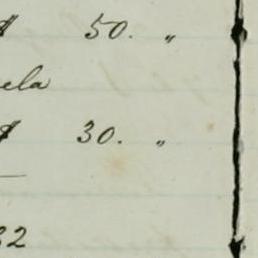 $ 50. "
ela
$ 30. "
32